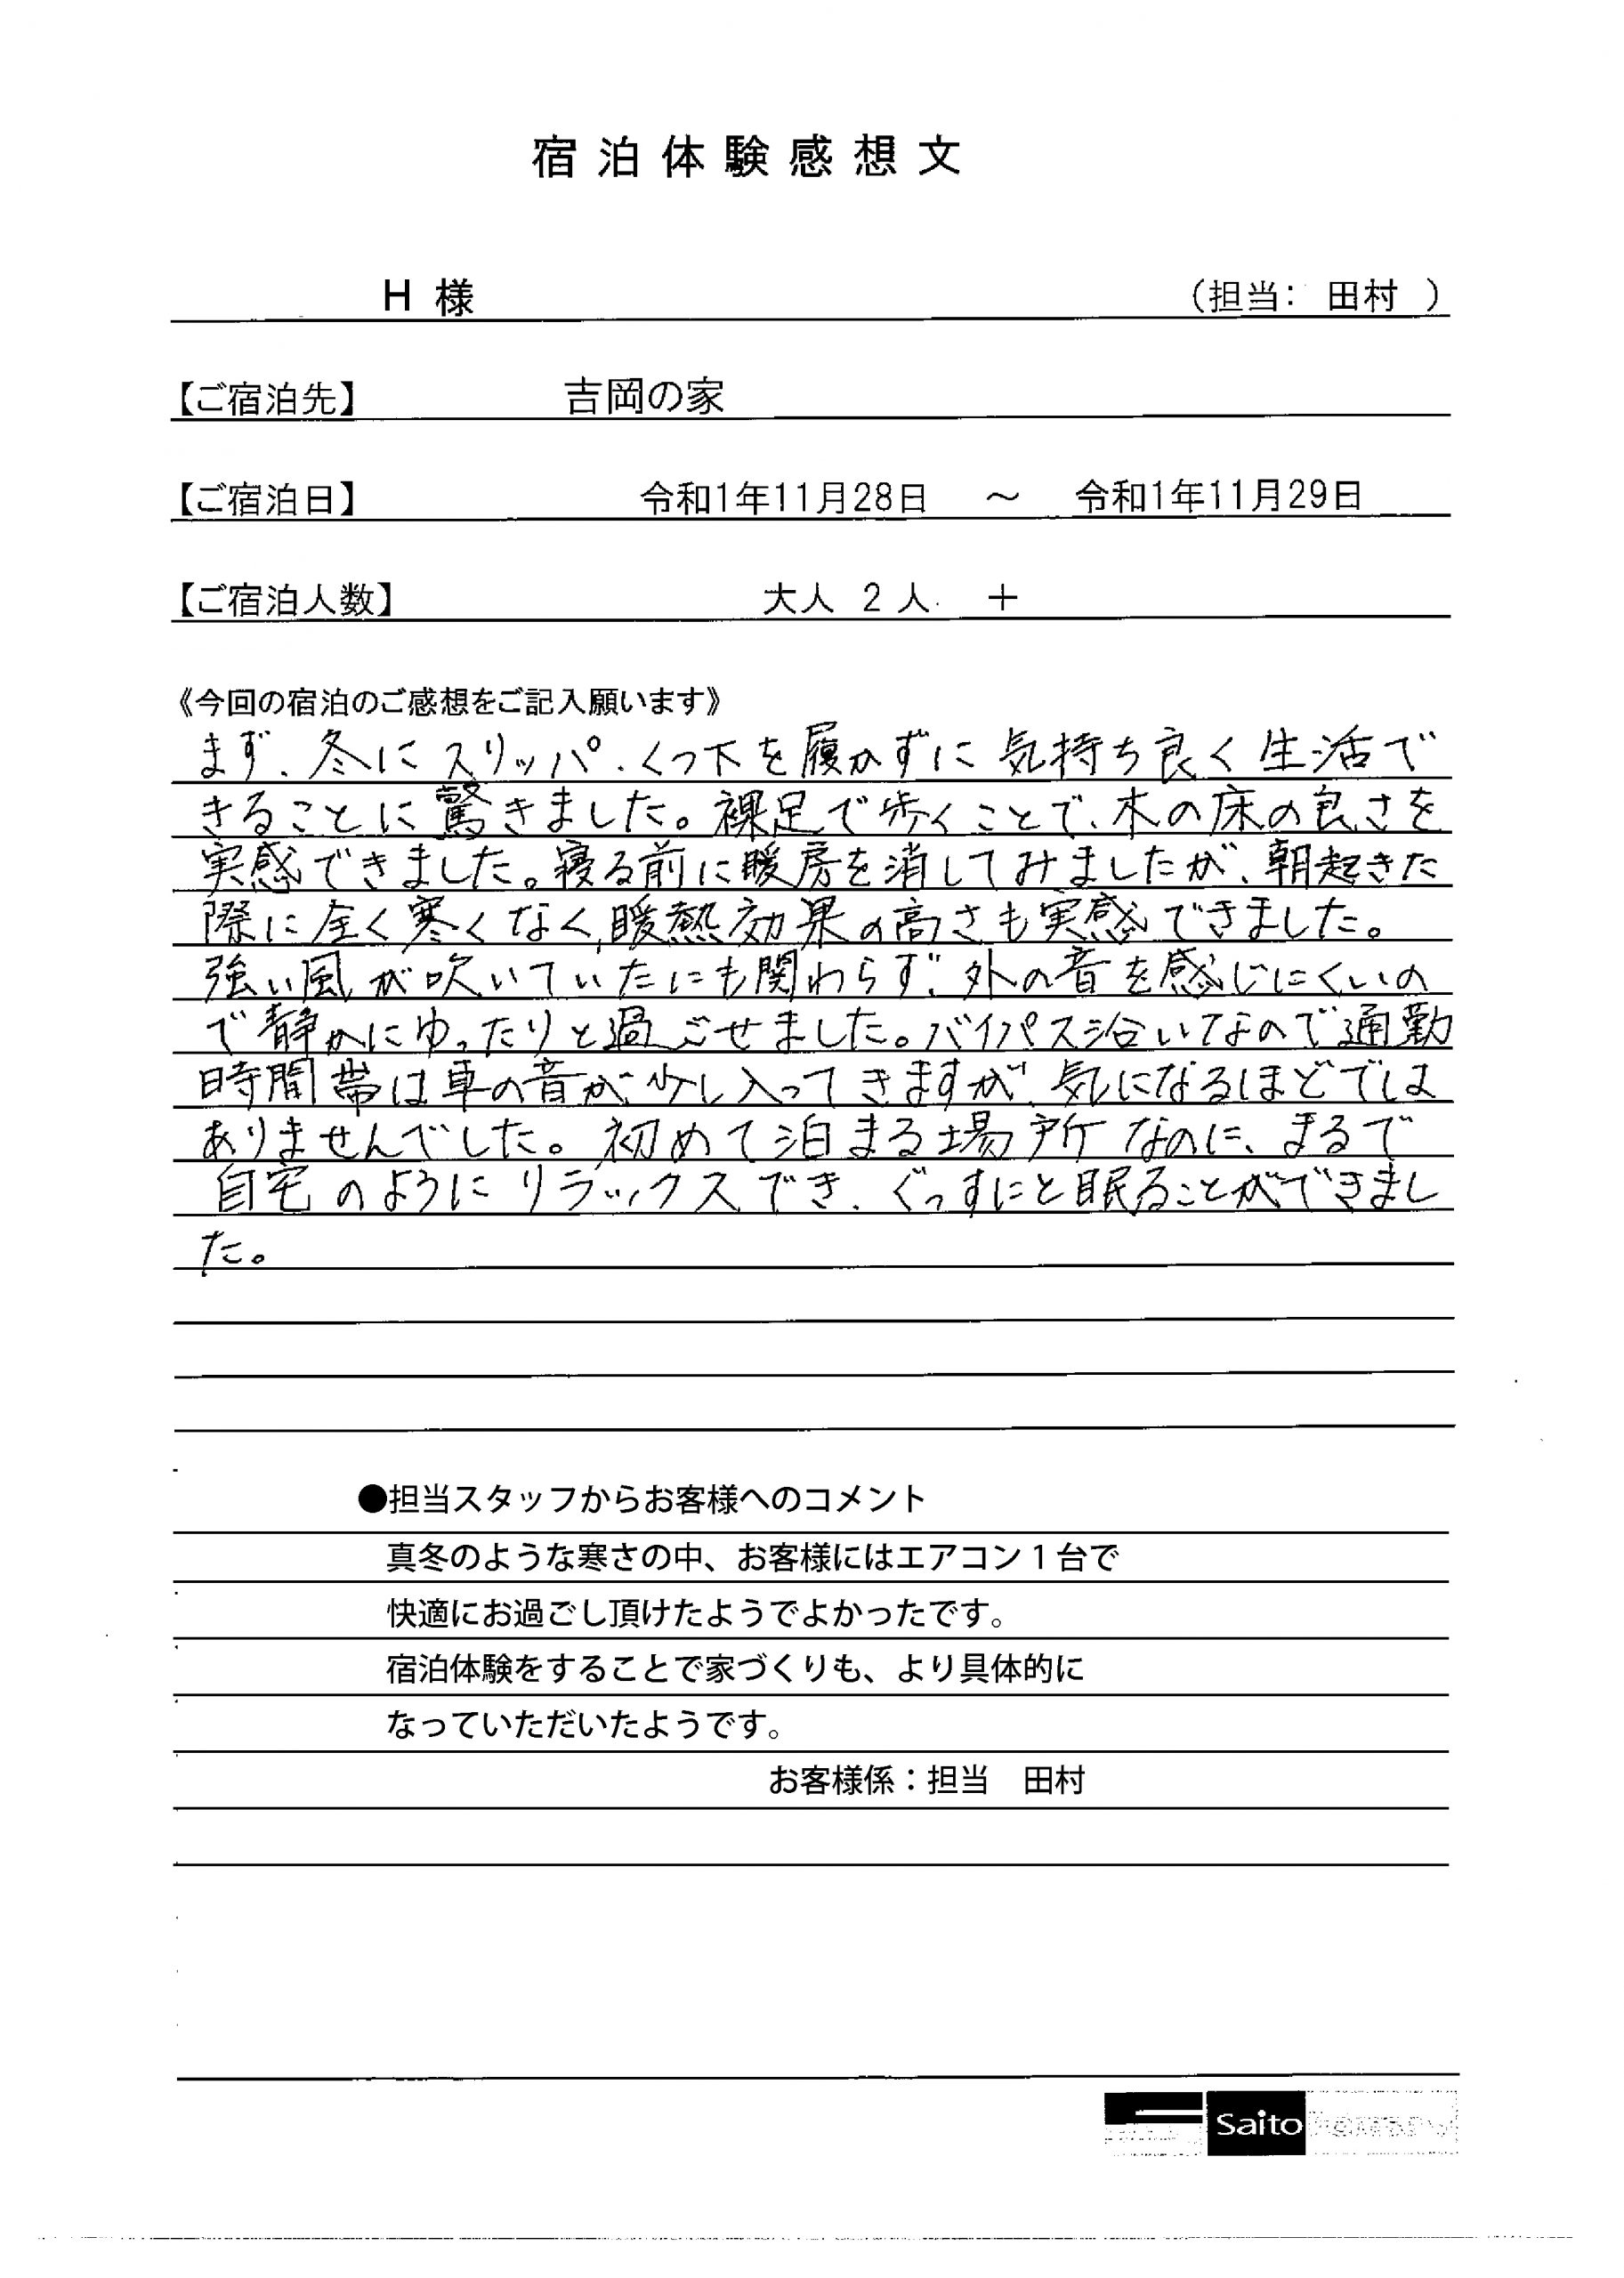 宿泊体験感想文
H 様 （担当： 田村 ）
【ご宿泊先】 吉岡の家
【ご宿泊日】 令和1年11月28日 ～ 令和1年11月29日
【ご宿泊人数】 大人 2 人 ＋
《今回の宿泊のご感想をご記入願います》
まず、冬にスリッパ・くつ下を履かずに気持ち良く生活で
きることに驚きました。裸足で歩くことで、木の床の良さを
実感できました。寝る前に暖房を消してみましたが、朝起きた
際に全く寒くなく、暖熱効果の高さも実感できました。
強い風が吹いていたにも関わらず、外の音を感じにくいの
で静かにゆったりと過ごせました。バイパス沿いなので通勤
時間帯は車の音が少し入ってきますが、気になるほどでは
ありませんでした。初めて泊まる場所なのに、まるで
自宅のようにリラックスでき、ぐっすにと眠ることができまし
た。
●担当スタッフからお客様へのコメント
真冬のような寒さの中、お客様にはエアコン１台で
快適にお過ごし頂けたようでよかったです。
宿泊体験をすることで家づくりも、より具体的に
なっていただいたようです。
お客様係：担当　田村
Saito